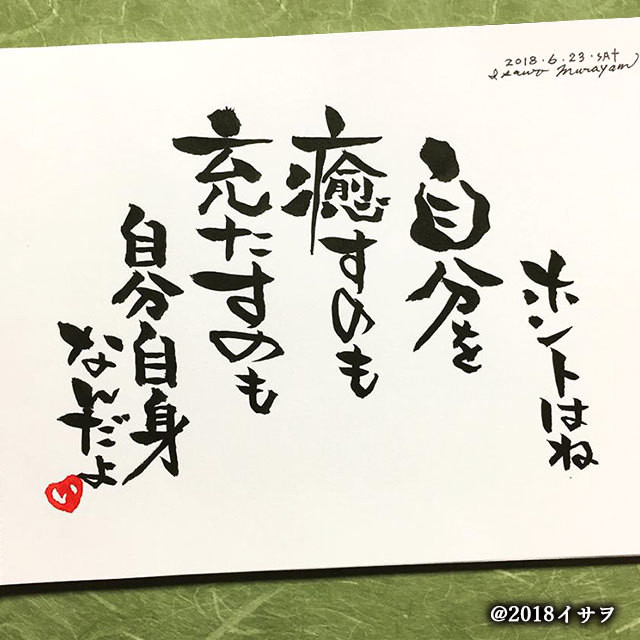 2018.6.23.SAT
Isawo Murayam
ホントはね
自分を
癒すのも
充たすのも
自分自身
なんだよ
い
@2018イサヲ